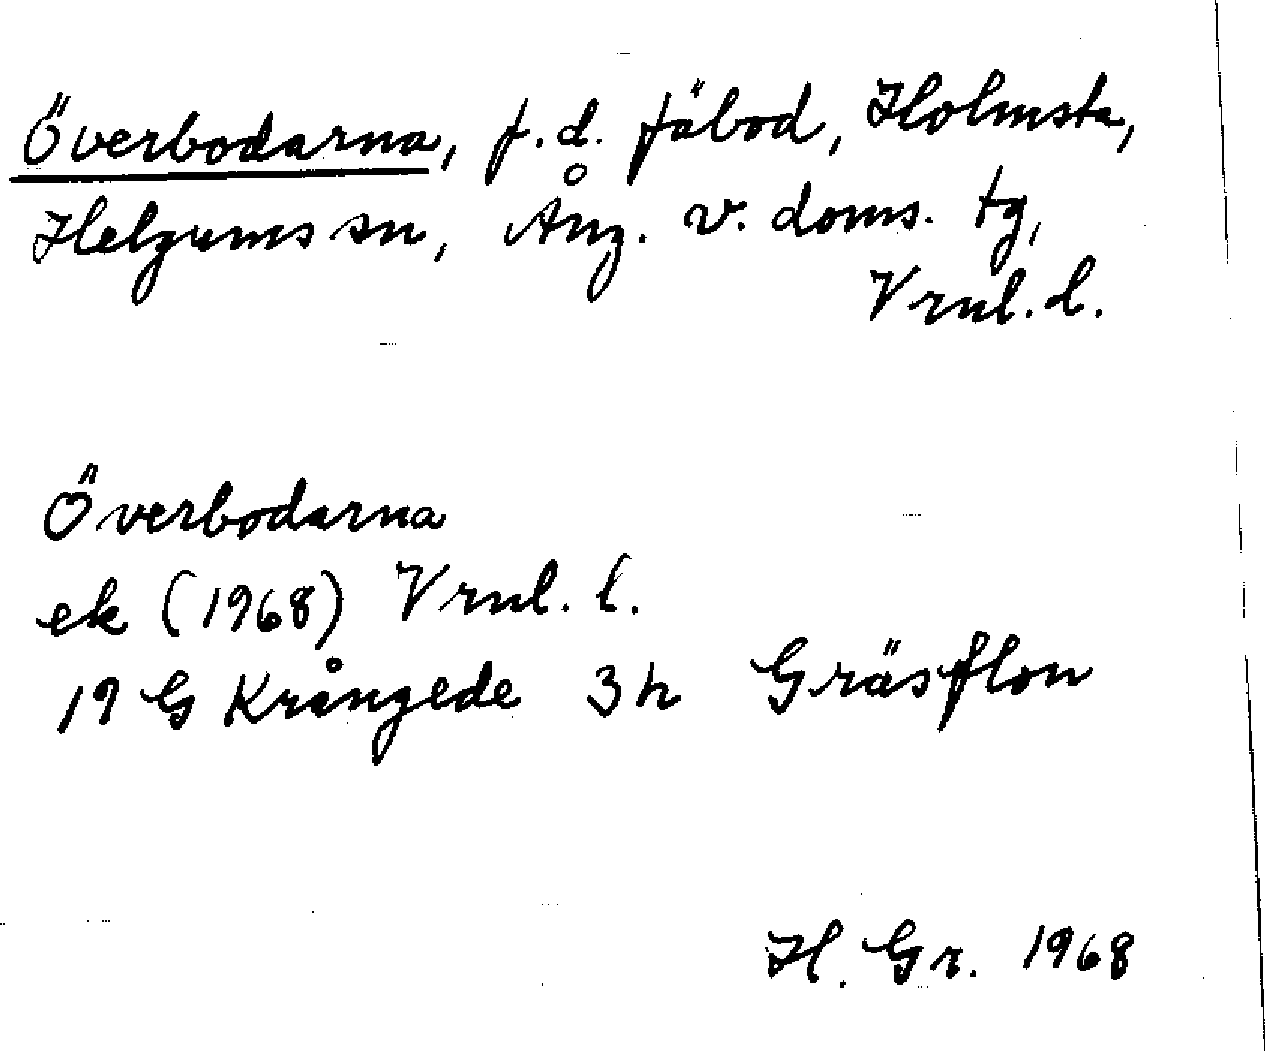 Överbodarna, f.d. fäbod, Holmsta,
Helgums sn, Ång. v. doms. tg,
Vrnl. l.
Överbodarna
ek (1968) Vrnl. l.
19 G Krångede 3 h Gräsflon
H. Gr. 1968